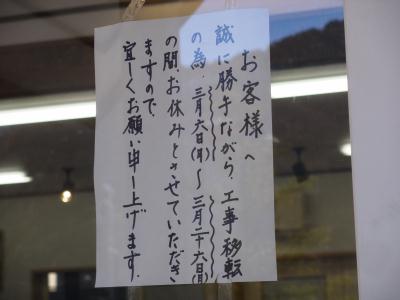 お客様へ
誠に勝手ながら、工事移転
の為、三月六日(月)〜三月二十六日(月)
の間お休みとさせていただき
ますので、
宜しくお願い申し上げます。